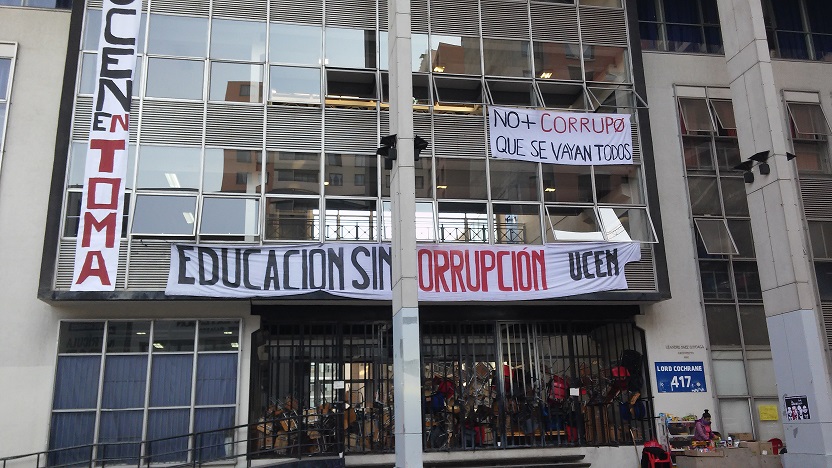 UCEN EN TOMA
NO+ CORRUPØ
QUE SE VAYAN TODOS
EDUCACIÓN SIN CORRUPCIÓN UCEN
LORD COCHRANE
417